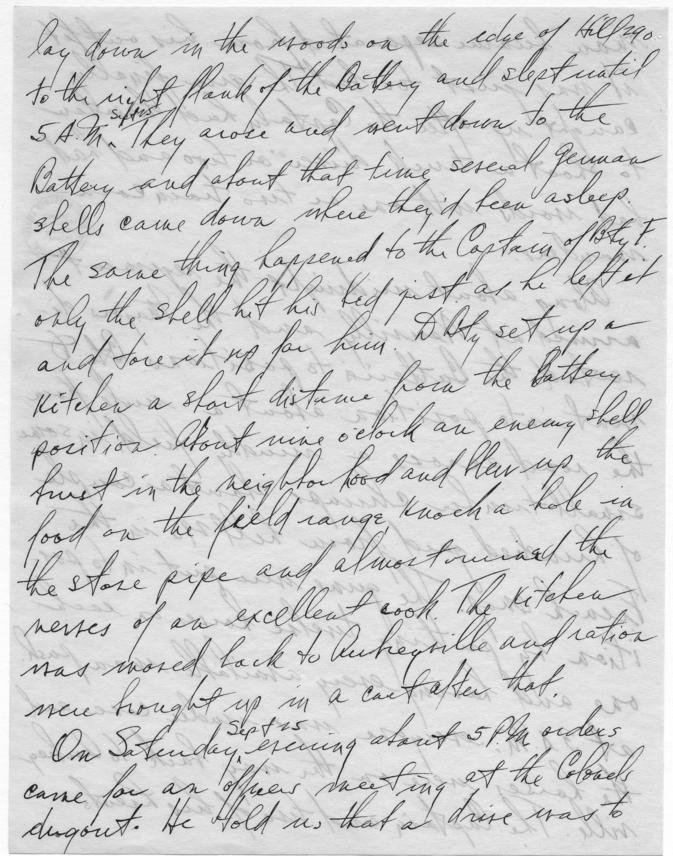 lay down in the woods on the edge of Hill 290
to the right flank of the Battery and slept until
Sept 25
5 A.M. They arose and went down to the
Battery and about that time several German
shells came down where they'd been asleep.
The same thing happened to the Captain of Bty F.
only the shell hit his bed just as he left it
and tore it up for him. D Bty set up a
Kitchen a short distance from the Battery
position. About nine o'clock an enemy shell
burst in the neighborhood and blew up the
food on the field range, knoch a hole in
the stove pipe and almost ruined the
nerves of an excellent cook. The Kitchen
was moved back to Aubreyville and ration
were brought up in a cart after that.
Sept 25
On Saturday, evening about 5 P.M orders
came for an officers meeting at the Colonels
dugout. He told us that a drive was to